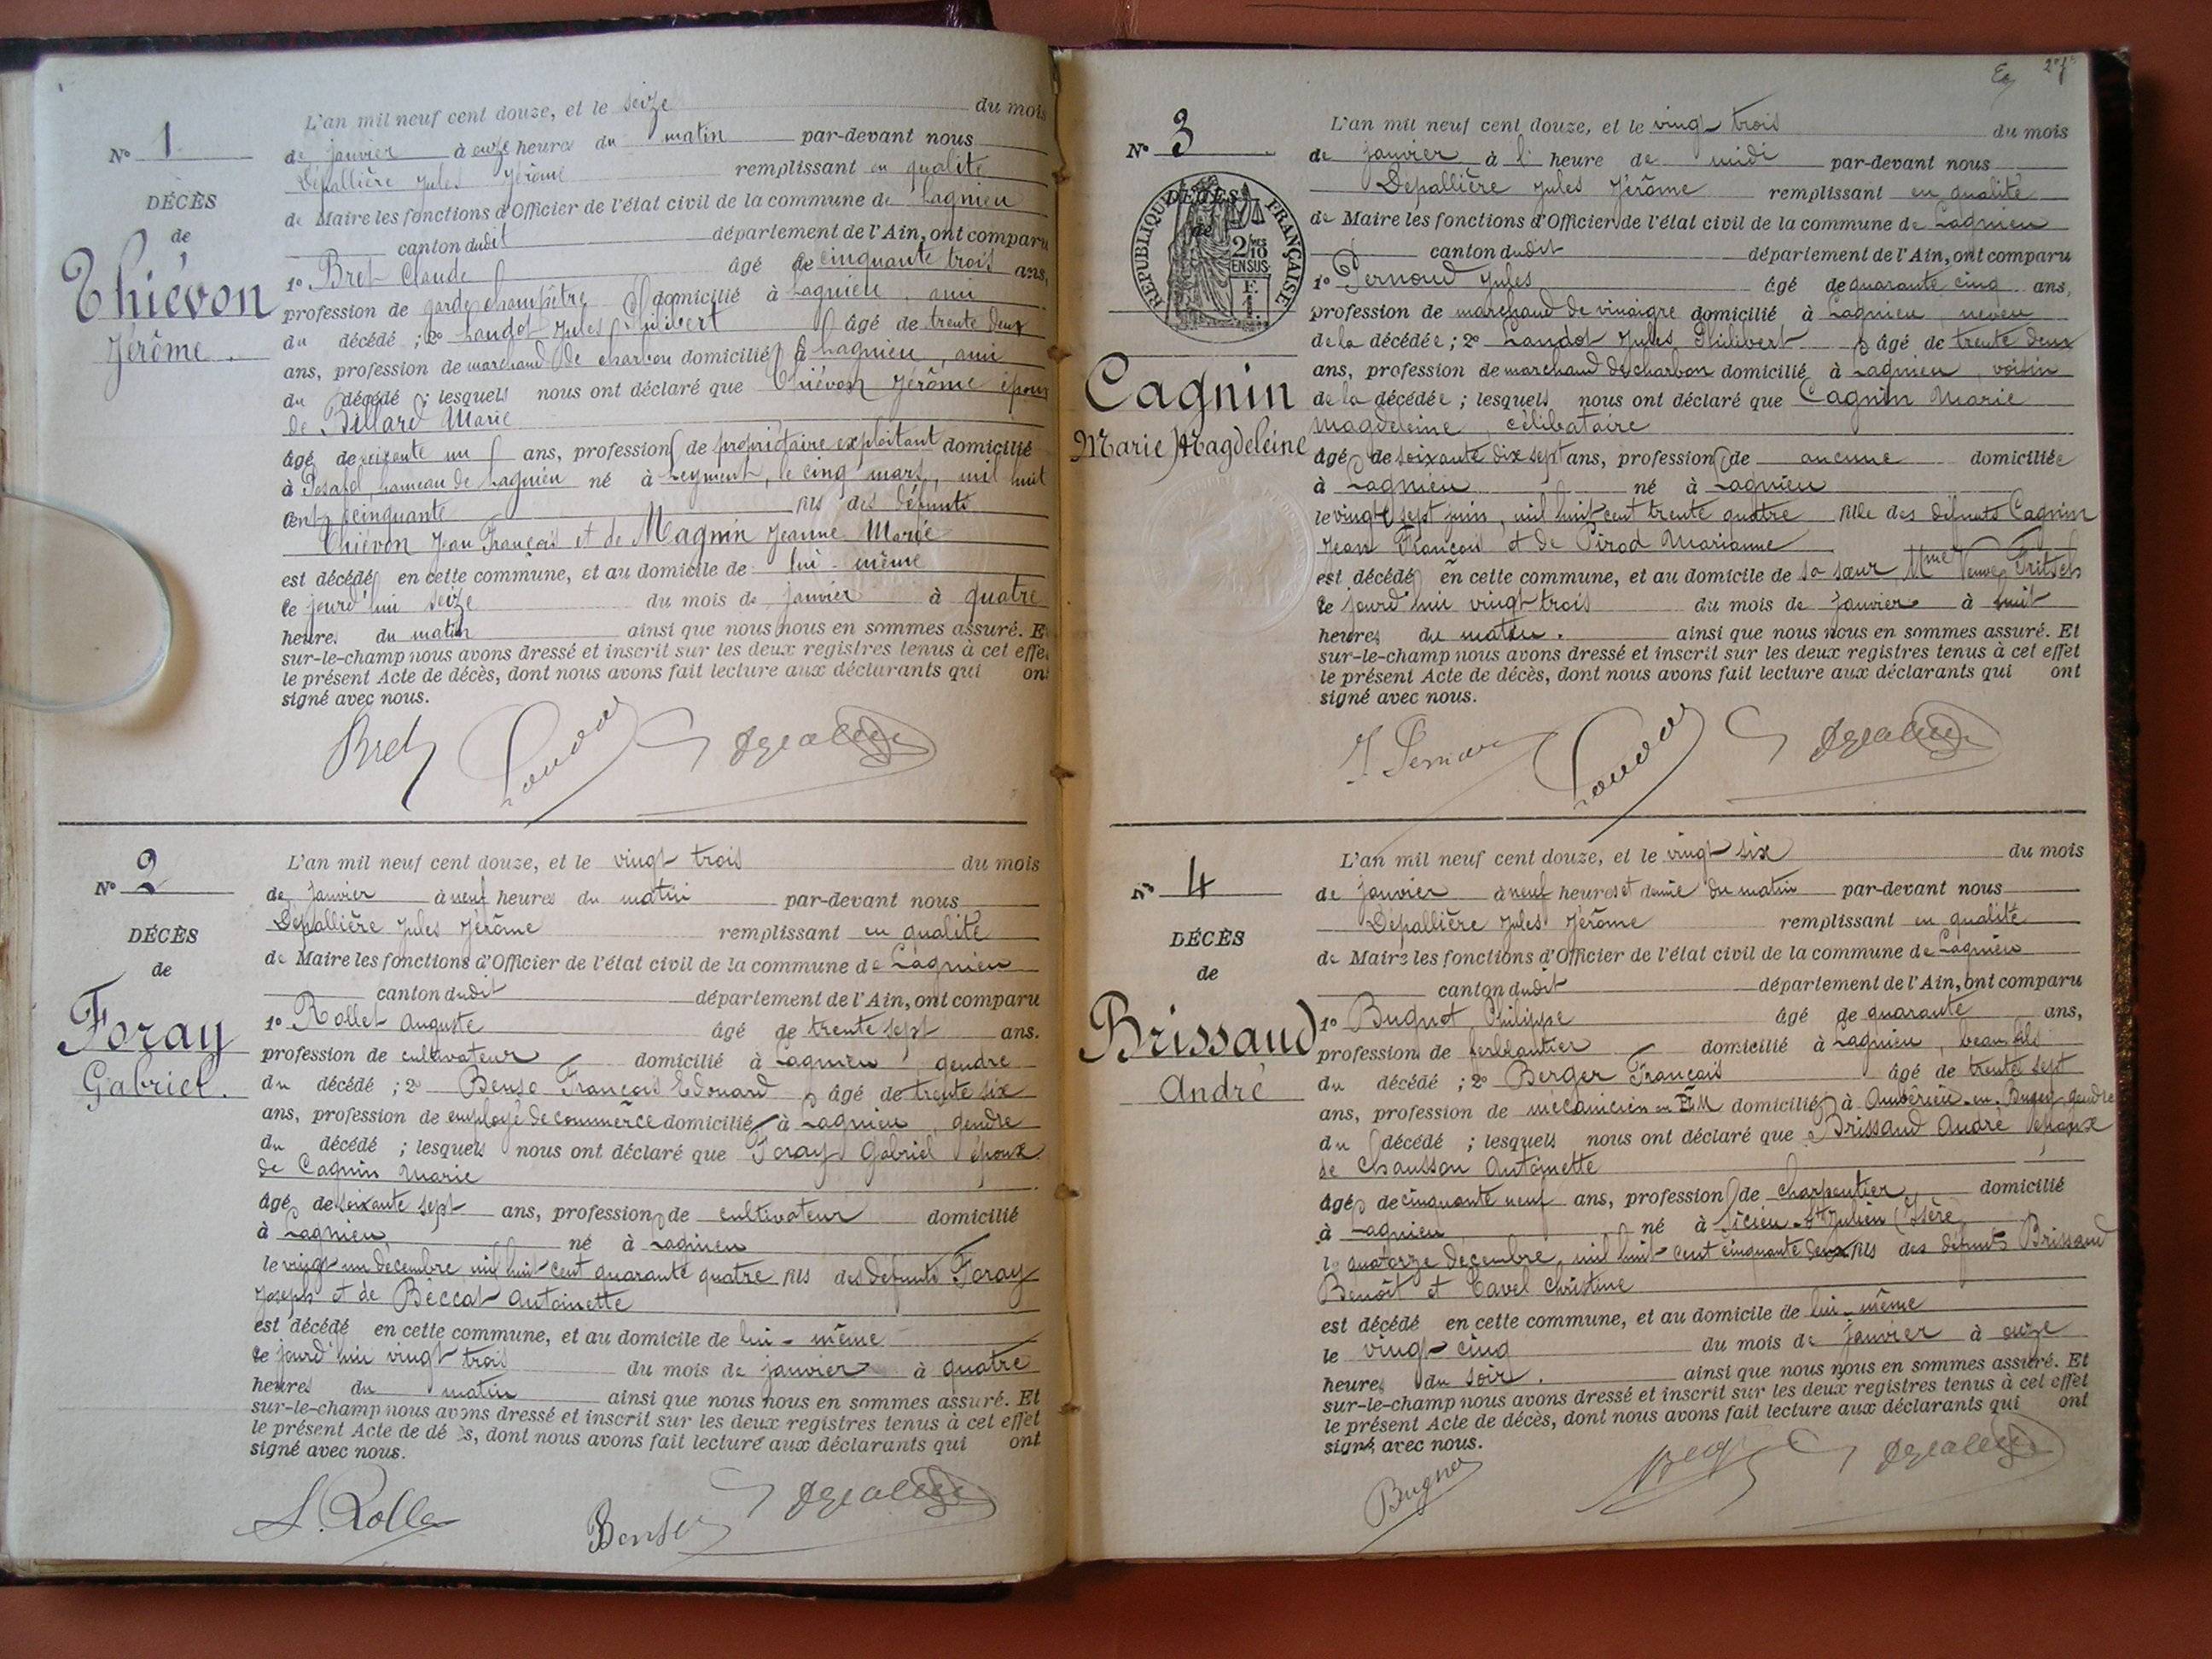 N° 1
DÉCÈS
de
Thiévon
Jérôme.
L'an mil neuf cent douze, et le seize du mois
de janvier à onze heures du matin par-devant nous
Dépallière Jules Jérôme remplissant en qualité
de Maire les fonctions d'Officier de l'état civil de la commune de Lagnieu
canton dudit département de l'Ain, ont comparu
1° Bret Claude âgé de cinquante trois ans,
profession de garde champêtre domicilié à Lagnieu, ami
du décédé ; 2° Laudot Jules Philibert âgé de trente deux
ans, profession de marchand de charbon domicilié à Lagnieu, ami
du décédé ; lesquels nous ont déclaré que Thiévon Jérôme époux
de Billard Marie
âgé de soixante un ans, profession de propriétaire exploitant domicilié
à Posafol, hameau de Lagnieu né à Leyment, le cinq mars, mil huit
cent cinquante fils des défunts
Thiévon Jean François et de Magnin Jeanne Marie
est décédé en cette commune, et au domicile de lui-même
le jourd'hui seize du mois de janvier à quatre
heures du matin ainsi que nous nous en sommes assuré. E
sur-le-champ nous avons dressé et inscrit sur les deux registres tenus à cet effe
le présent Acte de décès, dont nous avons fait lecture aux déclarants qui on
signé avec nous.
Bret Laudot
N° 2
DÉCÈS
de
Foray
Gabriel.
L'an mil neuf cent douze, et le vingt trois du mois
de janvier à neuf heures du matin par-devant nous
Dépallière Jules Jérôme remplissant en qualité
de Maire les fonctions d'Officier de l'état civil de la commune de Lagnieu
canton dudit département de l'Ain, ont comparu
1° Rollet Auguste âgé de trente sept ans.
profession de cultivateur domicilié à Lagnieu, gendre
du décédé ; 2° Bense François Edouard âgé de trente six
ans, profession de employé de commerce domicilié à Lagnieu, gendre
du décédé ; lesquels nous ont déclaré que Foray Gabriel époux
de Cagnin Marie
âgé de soixante sept ans, profession de cultivateur domicilié
à Lagnieu né à Lagnieu
le vingt un décembre mil huit cent quarante quatre fils des défunts Foray
Joseph et de Béccat Antoinette
est décédé en cette commune, et au domicile de lui-même
le jourd'hui vingt trois du mois de janvier à quatre
heures du matin ainsi que nous nous en sommes assuré. Et
sur-le-champ nous avons dressé et inscrit sur les deux registres tenus à cet effet
le présent Acte de dé s, dont nous avons fait lecture aux déclarants qui ont
signé avec nous.
Bense
N° 3
DÉCÈS
de
RÉPUBLIQUE FRANÇAISE
2/10
EN SUS
F.
1.
Cagnin
Marie Magdeleine
L'an mil neuf cent douze, et le vingt trois du mois
de janvier à l' heure de midi par-devant nous
Dépallière Jules Jérôme remplissant en qualité
de Maire les fonctions d'Officier de l'état civil de la commune de Lagnieu
canton dudit département de l'Ain, ont comparu
1° Pernoud Jules âgé de quarante cinq ans,
profession de marchand de vinaigre domicilié à Lagnieu, neveu
de la décédée ; 2° Laudot Jules Philibert âgé de trente deux
ans, profession de marchand de charbon domicilié à Lagnieu, voisin
de la décédée ; lesquels nous ont déclaré que Cagnin Marie
Magdeleine, célibataire
âgé de soixante dix sept ans, profession de aucune domiciliée
à Lagnieu né à Lagnieu
le vingt sept juin, mil huit cent trente quatre fille des défunts Cagnin
Jean François et de Pirod Marianne
est décédé en cette commune, et au domicile de sa sœur Mme Veuve Fritsch
le jourd'hui vingt trois du mois de janvier à huit
heures du matin. ainsi que nous nous en sommes assuré. Et
sur-le-champ nous avons dressé et inscrit sur les deux registres tenus à cet effet
le présent Acte de décès, dont nous avons fait lecture aux déclarants qui ont
signé avec nous.
Laudot
N° 4
DÉCÈS
de
Brissaud
André
L'an mil neuf cent douze, et le vingt six du mois
de janvier à neuf heures et demie du matin par-devant nous
Dépallière Jules Jérôme remplissant en qualité
de Maire les fonctions d'Officier de l'état civil de la commune de Lagnieu
canton dudit département de l'Ain, ont comparu
1° Bugnot Philippe âgé de quarante ans,
profession de ferblantier domicilié à Lagnieu, beau fils
du décédé ; 2° Berger François âgé de trente sept
ans, profession de mécanicien au domicilié à Ambérieu-en-Bugey, gendre
du décédé ; lesquels nous ont déclaré que Brissaud André époux
de Chausson Antoinette
âgé de cinquante neuf ans, profession de charpentier domicilié
à Lagnieu né à Sicieu-St Julien (Isère
le quatorze décembre, mil huit cent cinquante deux fils des défunts Brissaud
Benoît et Cavel Christine
est décédé en cette commune, et au domicile de lui-même
le vingt-cinq du mois de janvier à onze
heures du soir. ainsi que nous nous en sommes assuré. Et
sur-le-champ nous avons dressé et inscrit sur les deux registres tenus à cet effet
le présent Acte de décès, dont nous avons fait lecture aux déclarants qui ont
signé avec nous.
Bugnot